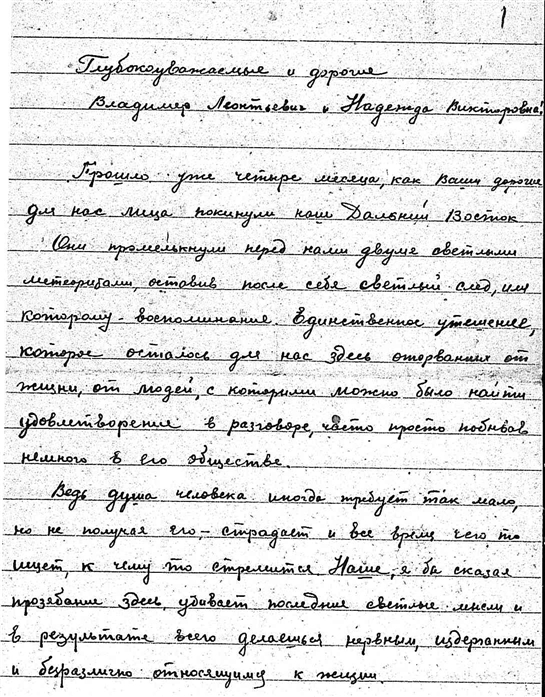 1
Глубокоуважаемые и дорогие
Владимир Леонтьевич и Надежда Викторовна!
Прошло уже четыре месяца, как Ваши дорогие
для нас лица покинули наш Дальний Восток
Они промелькнули перед нами двумя светлыми
метеоритами, оставив после себя светлый след, имя
которому - воспоминание. Единственное утешение,
которое осталось для нас здесь оторванных от
жизни, от людей, с которыми можно было найти
удовлетворение в разговоре, часто просто побывав
немного в его обществе.
Ведь душа человека иногда требует так мало,
но не получая его, - страдает и все время чего то
ищет, к чему то стремится. Наше, я бы сказал
прозябание здесь, убивает последние светлые мысли и
в результате всего делаешься нервным, издерганным
и безразлично относящимся к жизни.